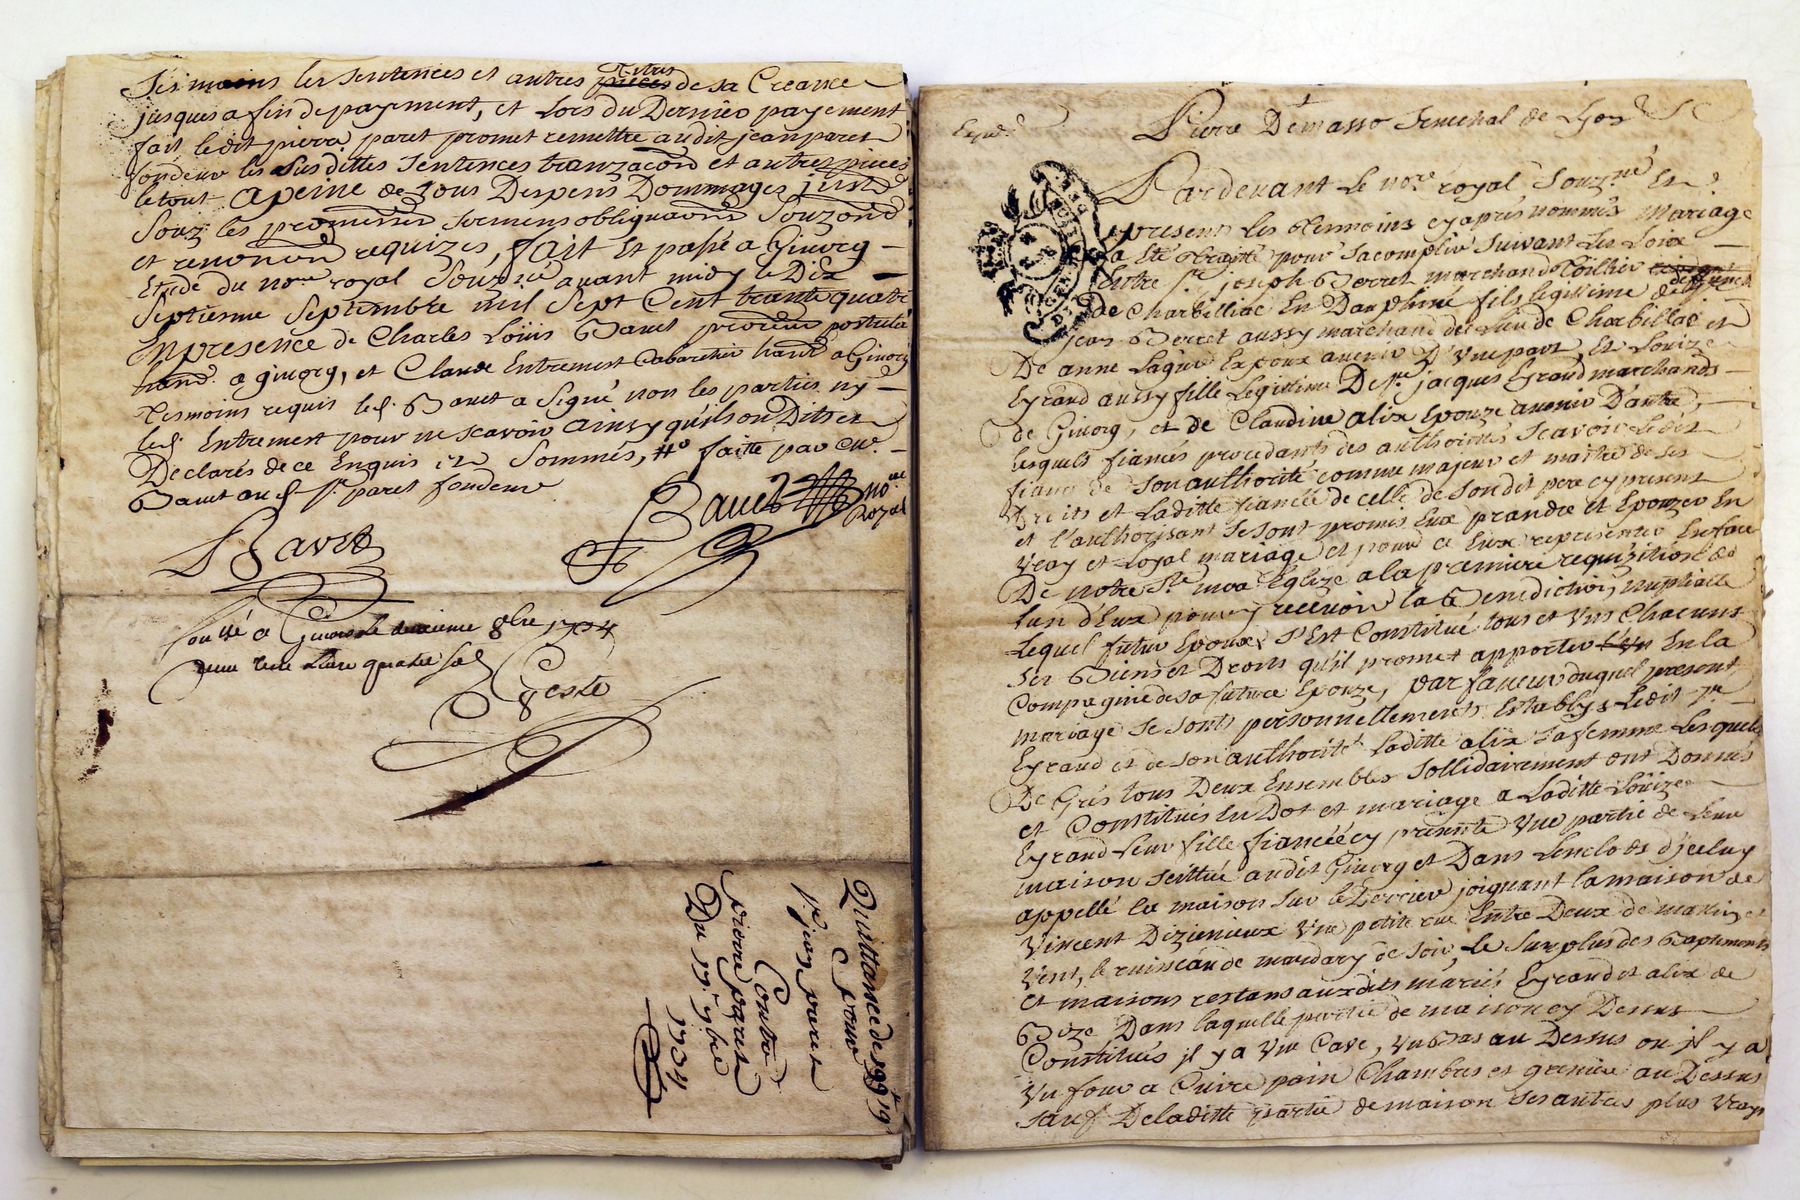 ses mains les sentences et autres titres de sa Creance
jusques a fin de payement, et Lors du Dernier payement
fait ledit pierre paret promet remettre audit jean paret
fondeur les susdittes sentences et autres pieces
le tout a peine de tous Despens Dommages
Souz les promesses sermens
et requizes, fait et passé a Givorg
Etude du no.re royal avant midy le Dix
Septieme Septembre mil Sept Cent trente quatre
En presence de Charles Loüis Bavet postulant
a givorg, et Claude Entremest Cabaretier a Givorg
tesmoins requis le s. Bavet a Signé non les parties ny
le s. Entremest pour ne scavoir ainsy quils ont Dits et
Declarés de ce Enquis et Sommés, faitte par
Bavet au s. paret fondeur
Bavet
Bavet no.re Royal
a Givors le 8bre 1734
livre quatre sols
Geste
Quittance de 199
pour
s.r jean paret
Contre
pierre paret
Du 17.e 7bre
1734
Exped.
Pierre Demasso Senechal de Lyon
Pardevant Le no.re royal Souz.né Et
presents les temoins cy aprés nommés mariage
a Eté pour s'acomplir suivant Les Loix
Entre s.r joseph Berret marchand
de Charbilliac En Dauphiné fils legitime de
jean Berret aussy marchand du Lieu de Charbillac et
De anne Epoux avenir D'une part, Et Loüize
Eyraud aussy fille legitime De s.r jacques Eyraud marchand
de Givorg, et de Claudine alix Epouze avenir D'autre,
lesquels fiancés procedants des authorités scavoir Ledit
fiancé de son authorité comme majeur et maitre de ses
Droits et Laditte fiancée de celle de Son dit pere cy present
et l'authorisant se sont promis Eux prandre et Epouzer En
vray et Loyal mariage et pour ce Eux representer En face
De notre S.te Eglize a la premiere requizition de
lun d'Eux pour y recevoir la Benediction nuptialle
Lequel futur Epoux s'Est Constitué tous et uns Chacuns
ses Biens et Droits qu'il promet apporter En la
Compagnie de sa future Epouze, par faveur duquel present
mariage se sont personnellement Establys Ledit s.r
Eyraud et de son authorité Laditte alix sa femme Lesquels
De Grés tous Deux Ensembles Sollidairement ont Donnés
et Constitués En Dot et mariage a Laditte Loüize
Eyraud Leur fille fiancée cy presente Une partie de Leur
maison scittuée audit Givorg et Dans Lenclos d'jceluy
appellé la maison Sur le Terrier joignant la maison de
Vincent Dizimieux Une petite rue Entre Deux de matin et
vent, le ruisseau de mardary de soir, le Surplus des Batiments
et maisons restans auxdits mariés Eyraud et alix de
Bize Dans laquelle partie de maison cy Dessus
Constituée jl y a Une Cave, Un Bas au Dessus ou jl y a
Un four a Cuire pain Chambres et grenier au Dessus
Sauf De laditte partie de maison ses autres plus vrays